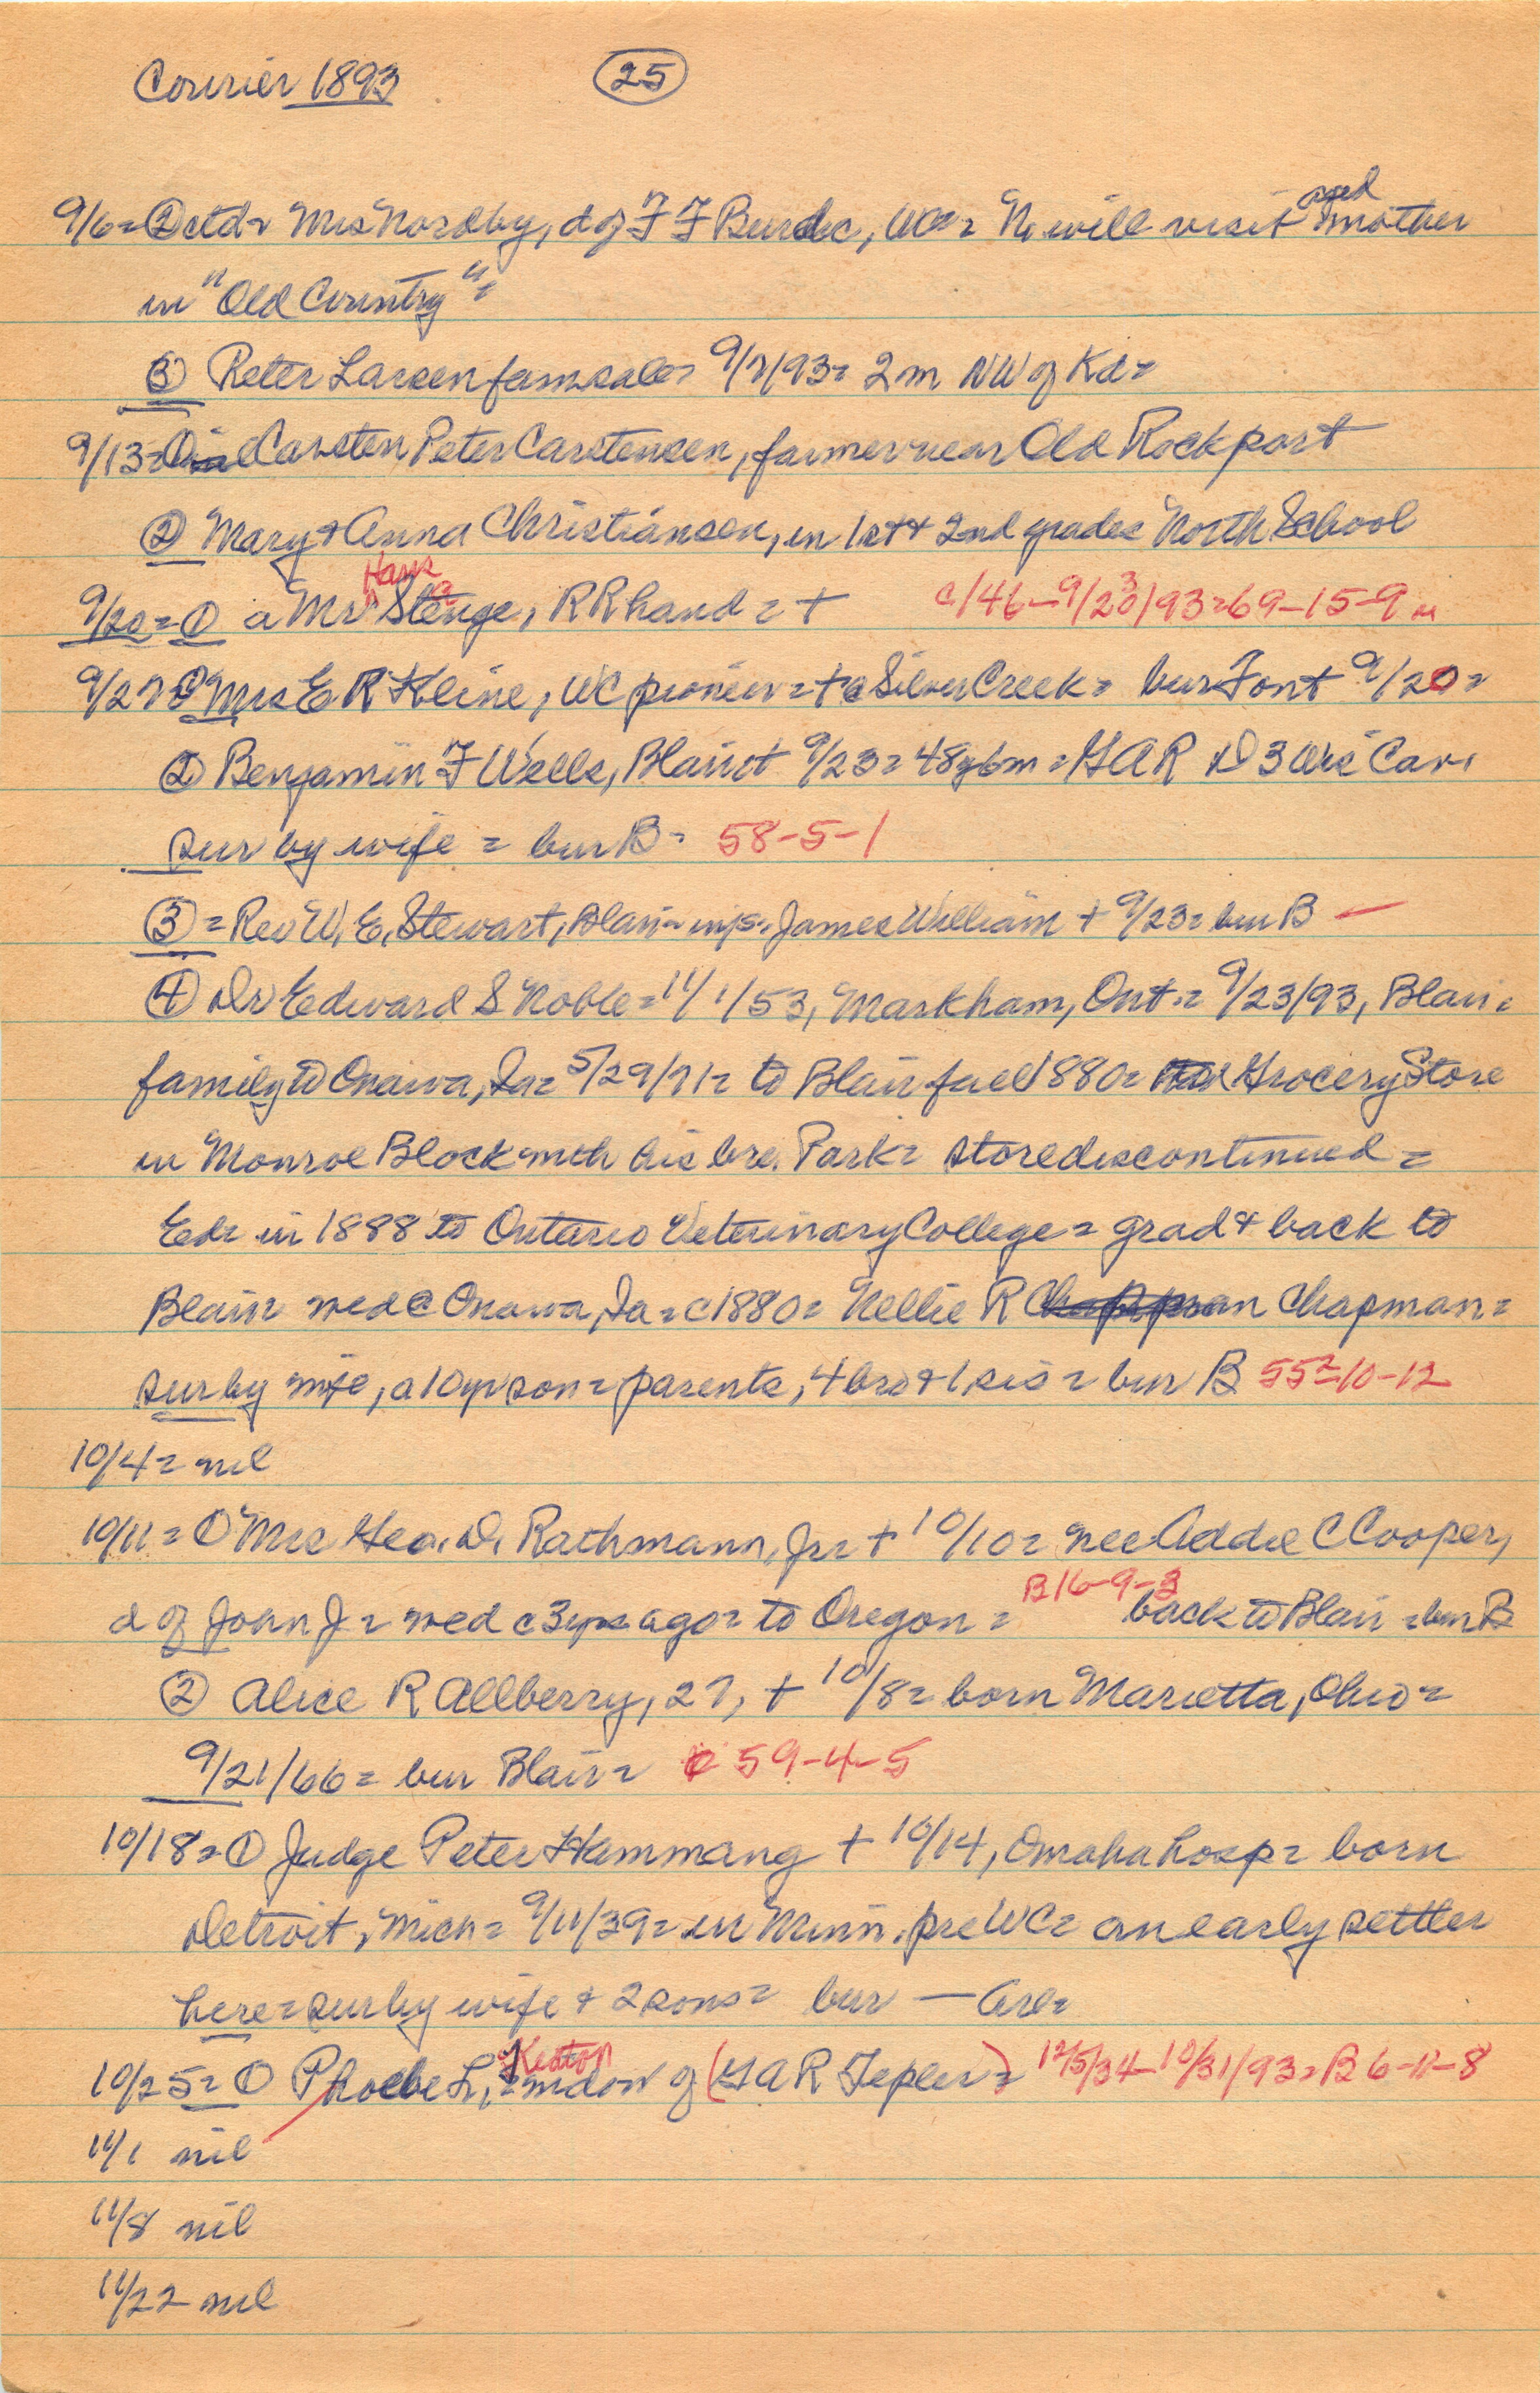 Courier 1893 25
9/6= 2 ctd= Mrs Nordby, d of F F Burdic, WC= N. will visit aged mother
in "Old Country"=
3 Peter Larsen farm sale= 9/7/93= 2m NW of Kd=
9/13= 1 Carsten Peter Carstensen, farmer near Old Rockport
2 Mary & Anna Christiansen, in 1st & 2nd grades North School
9/20= 1 a Mr Hans Stenge, RR hand = + c/46-9/20/93=69-15-9
9/27 1 Mrs E R Kline, WC pioneer = + @ Silver Creek= bur Font 9/20=
2 Benjamin F Wells, Blair + 9/23= 48y6m = GAR D 3 Wis Cav.
sur by wife = bur B= 58-5-1
3 = Rev W. E. Stewart, Blair= inf s. James William + 9/23= bur B —
4 Dr Edward S Noble= 11/1/53, Markham, Ont.= 9/23/93, Blair=
family to Onawa, Ia= 5/29/71= to Blair fall 1880= Grocery Store
in Monroe Block with his bro. Park= store discontinued =
Ed= in 1888 to Ontario Veterinary College= grad & back to
Blair wed @ Onawa, Ia = c1880= Nellie R Chapman=
sur by wife, a 10yr son = parents, 4 bro & 1 sis = bur B 55-10-12
10/4= nil
10/11= 1 Mrs Geo. D. Rathmann, Jr= + 10/10= nee Addie C Cooper,
d of John J = wed c3yrs ago= to Oregon = B 16-9-3 back to Blair = bur B
2 Alice R Allberry, 27, + 10/8= born Marietta, Ohio=
9/21/66= bur Blair= 59-4-5
10/18= 1 Judge Peter Hammang + 10/14, Omaha hosp= born
Detroit, Mich= 9/11/39= in Minn. pre WC= an early settler
here= sur by wife & 2 sons= bur — Arl=
10/25= 1 Phoebe L, Keaton widow of (GAR Tepler)= 12/5/34-10/31/93= B 6-11-8
11/1 nil
11/8 nil
11/22 nil